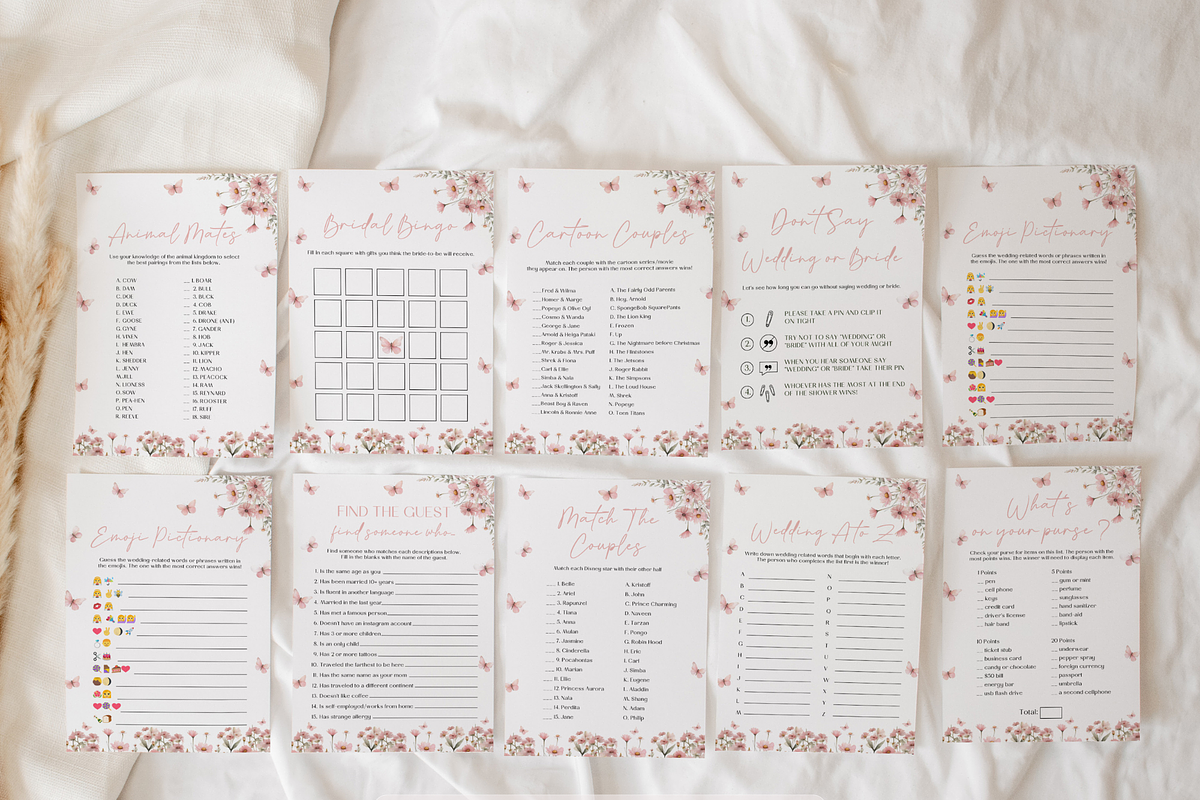 Animal Mates
Use your knowledge of the animal kingdom to select
the best pairings from the lists below.
A. COW
B. DAM
C. DOE
D. DUCK
E. EWE
F. GOOSE
G. GYNE
H. VIXEN
I. HEMBRA
J. HEN
K. SHEDDER
L. JENNY
M. JILL
N. LIONESS
O. SOW
P. PEA-HEN
Q. PEN
R. REEVE
__ 1. BOAR
__ 2. BULL
__ 3. BUCK
__ 4. COB
__ 5. DRAKE
__ 6. DRONE (ANT)
__ 7. GANDER
__ 8. HOB
__ 9. JACK
__ 10. KIPPER
__ 11. LION
__ 12. MACHO
__ 13. PEACOCK
__ 14. RAM
__ 15. REYNARD
__ 16. ROOSTER
__ 17. RUFF
__ 18. SIRE
Bridal Bingo
Fill in each square with gifts you think the bride-to-be will receive.
Cartoon Couples
Match each couple with the cartoon series/movie
they appear on. The person with the most correct answers wins!
___Fred & Wilma
___Homer & Marge
___Popeye & Olive Oyl
___Cosmo & Wanda
___George & Jane
___Arnold & Helga Pataki
___Roger & Jessica
___Mr. Krabs & Mrs. Puff
___Shrek & Fiona
___Carl & Ellie
___Simba & Nala
___Jack Skellington & Sally
___Anna & Kristoff
___Beast Boy & Raven
___Lincoln & Ronnie Anne
A. The Fairly Odd Parents
B. Hey, Arnold
C. SpongeBob SquarePants
D. The Lion King
E. Frozen
F. Up
G. The Nightmare before Christmas
H. The Flinstones
I. The Jetsons
J. Roger Rabbit
K. The Simpsons
L. The Loud House
M. Shrek
N. Popeye
O. Teen Titans
Don't Say
Wedding or Bride
Let's see how long you can go without saying wedding or bride.
1. PLEASE TAKE A PIN AND CLIP IT
ON TIGHT
2. TRY NOT TO SAY "WEDDING" OR
"BRIDE" WITH ALL OF YOUR MIGHT
3. WHEN YOU HEAR SOMEONE SAY
"WEDDING" OR "BRIDE" TAKE THEIR PIN
4. WHOEVER HAS THE MOST AT THE END
OF THE SHOWER WINS!
Emoji Pictionary
Guess the wedding-related words or phrases written in
the emojis. The one with the most correct answers wins!
Emoji Pictionary
Guess the wedding-related words or phrases written in
the emojis. The one with the most correct answers wins!
FIND THE GUEST
find someone who..
Find someone who matches each descriptions below.
Fill in the blanks with the name of the guest.
1. Is the same age as you
2. Has been married 10+ years
3. Is fluent in another language
4. Married in the last year
5. Has met a famous person
6. Doesn't have an instagram account
7. Has 3 or more children
8. Is an only child
9. Has 2 or more tattoos
10. Traveled the farthest to be here
11. Has the same name as your mom
12. Has traveled to a different continent
13. Doesn't like coffee
14. Is self-employed/works from home
15. Has strange allergy
Match The
Couples
Match each Disney star with their other half
___1. Belle
___2. Ariel
___3. Rapunzel
___4. Tiana
___5. Anna
___6. Mulan
___7. Jasmine
___8. Cinderella
___9. Pocahontas
___10. Marian
___11. Ellie
___12. Princess Aurora
___13. Nala
___14. Perdita
___15. Jane
A. Kristoff
B. John
C. Prince Charming
D. Naveen
E. Tarzan
F. Pongo
G. Robin Hood
H. Eric
I. Carl
J. Simba
K. Eugene
L. Aladdin
M. Shang
N. Adam
O. Philip
Wedding A to Z
Write down wedding-related words that begin with each letter.
The person who completes the list first is the winner!
A
B
C
D
E
F
G
H
I
J
K
L
M
N
O
P
Q
R
S
T
U
V
W
X
Y
Z
What's
on your purse ?
Check your purse for items on this list. The person with the
most points wins. The winner will need to display each item.
1 Points
__ pen
__ cell phone
__ keys
__ credit card
__ driver's license
__ hair band
5 Points
__ gum or mint
__ perfume
__ sunglass
__ hand sanitizer
__ band-aid
__ lipstick
10 Points
__ ticket stub
__ business card
__ candy or chocolate
__ $50 bill
__ energy bar
__ usb flash drive
20 Points
__ underwear
__ pepper spray
__ foreign currency
__ passport
__ umbrella
__ a second cellphone
Total: